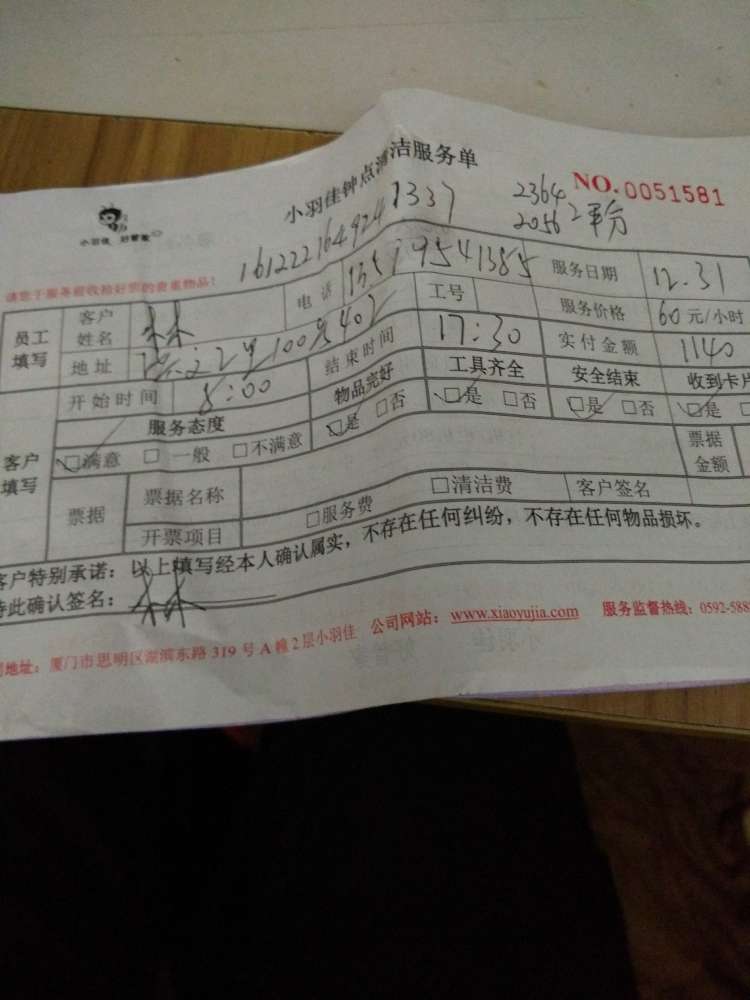 小羽佳钟点清洁服务单
NO.0051581
小羽佳 好管家
1612221649241337
2364
2056 2平分
请您于服务前收拾好您的贵重物品!
员工填写
客户姓名 林
电话
服务日期 12.31
地址
工号
服务价格 60元/小时
开始时间 8:00
结束时间 17:30
实付金额 1140
客户填写
服务态度
物品完好
工具齐全
安全结束
收到卡片
☑满意 □一般 □不满意
☑是 □否
☑是 □否
☑是 □否
☑是
票据
票据名称
票据金额
开票项目
□服务费
□清洁费
客户签名
客户特别承诺:以上填写经本人确认属实,不存在任何纠纷,不存在任何物品损坏。
特此确认签名:林
地址:厦门市思明区湖滨东路319号A幢2层小羽佳 公司网站:www.xiaoyujia.com 服务监督热线:0592-588